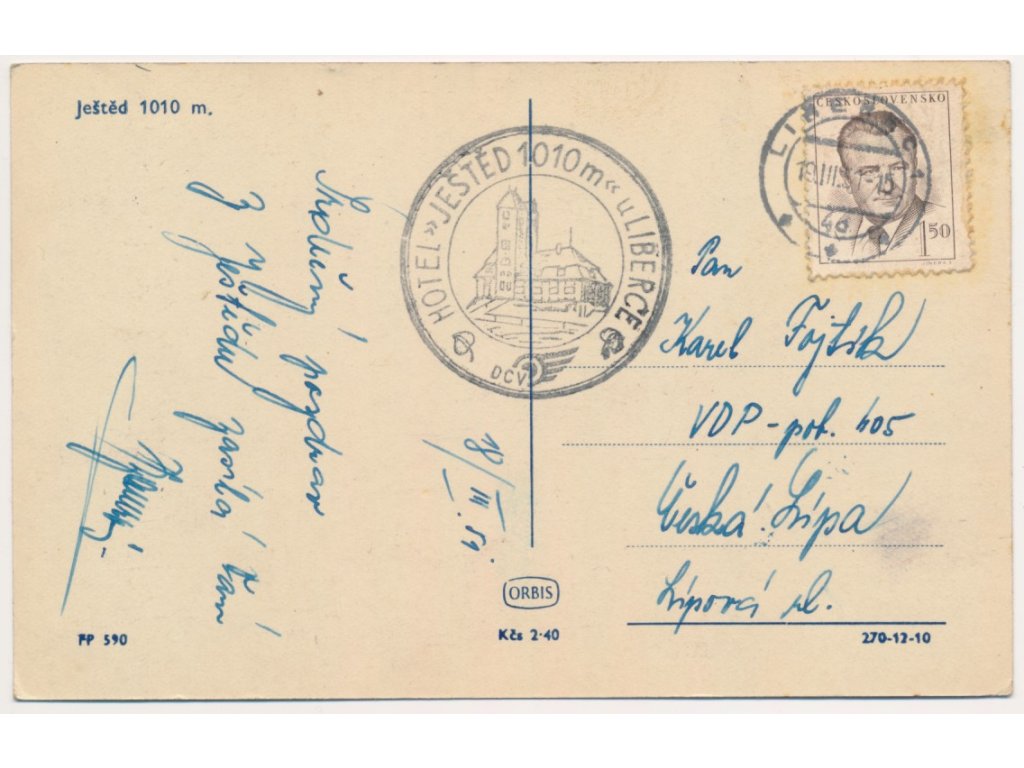 Ještěd 1010 m.
Srdečný pozdrav
z Ještědu zasílá Vám
18/III. 51.
HOTEL »JEŠTĚD 1010m« u LIBERCE
DCV
ČESKOSLOVENSKO
1 50
LIBEREC 1
19.III.5
4g
Pan
Karel Fojtík
VDP - pot. 405
Česká Lípa
Lípová ul.
ORBIS
FP 590
Kčs 2·40
270-12-10